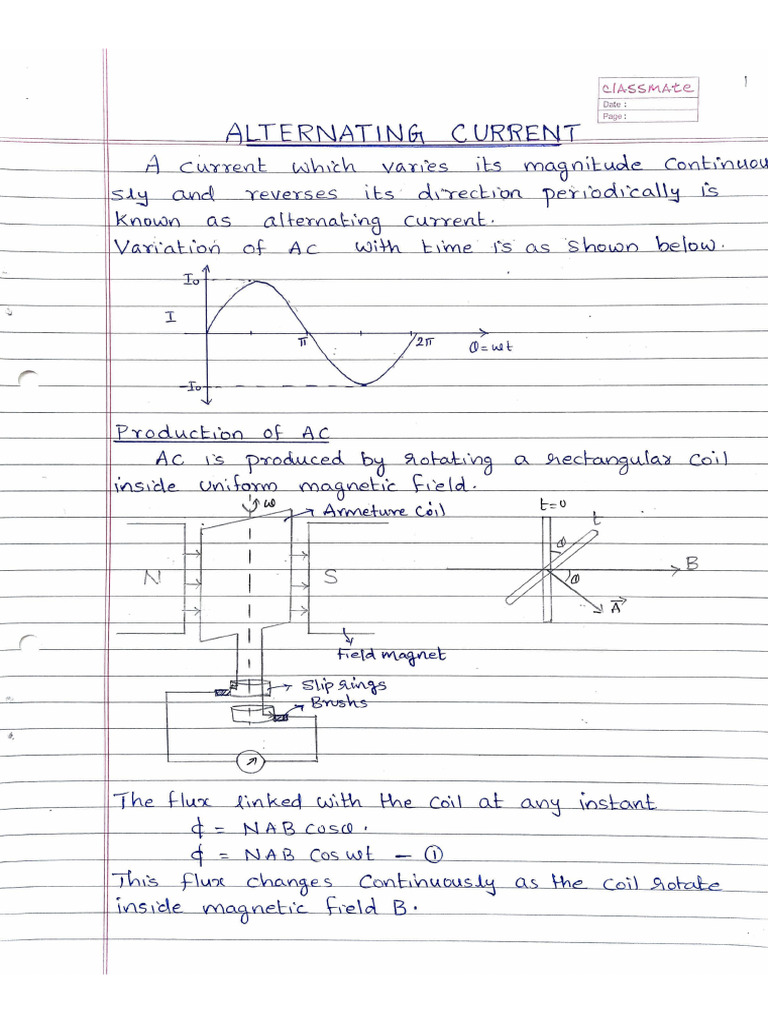 classmate
1
Date :
Page :
ALTERNATING CURRENT
A current which varies its magnitude continuou
sly and reverses its direction periodically is
known as alternating current.
Variation of AC with time is as shown below.
I₀
I
π
2π
θ=ωt
-I₀
Production of AC
AC is produced by rotating a rectangular coil
inside uniform magnetic field.
ω
Armeture coil
t=0
t
θ
N
S
B
θ
A⃗
Field magnet
Slip rings
Brushs
The flux linked with the coil at any instant
ϕ = NAB cosθ.
ϕ = NAB cos ωt — ①
This flux changes continuously as the coil rotate
inside magnetic field B.